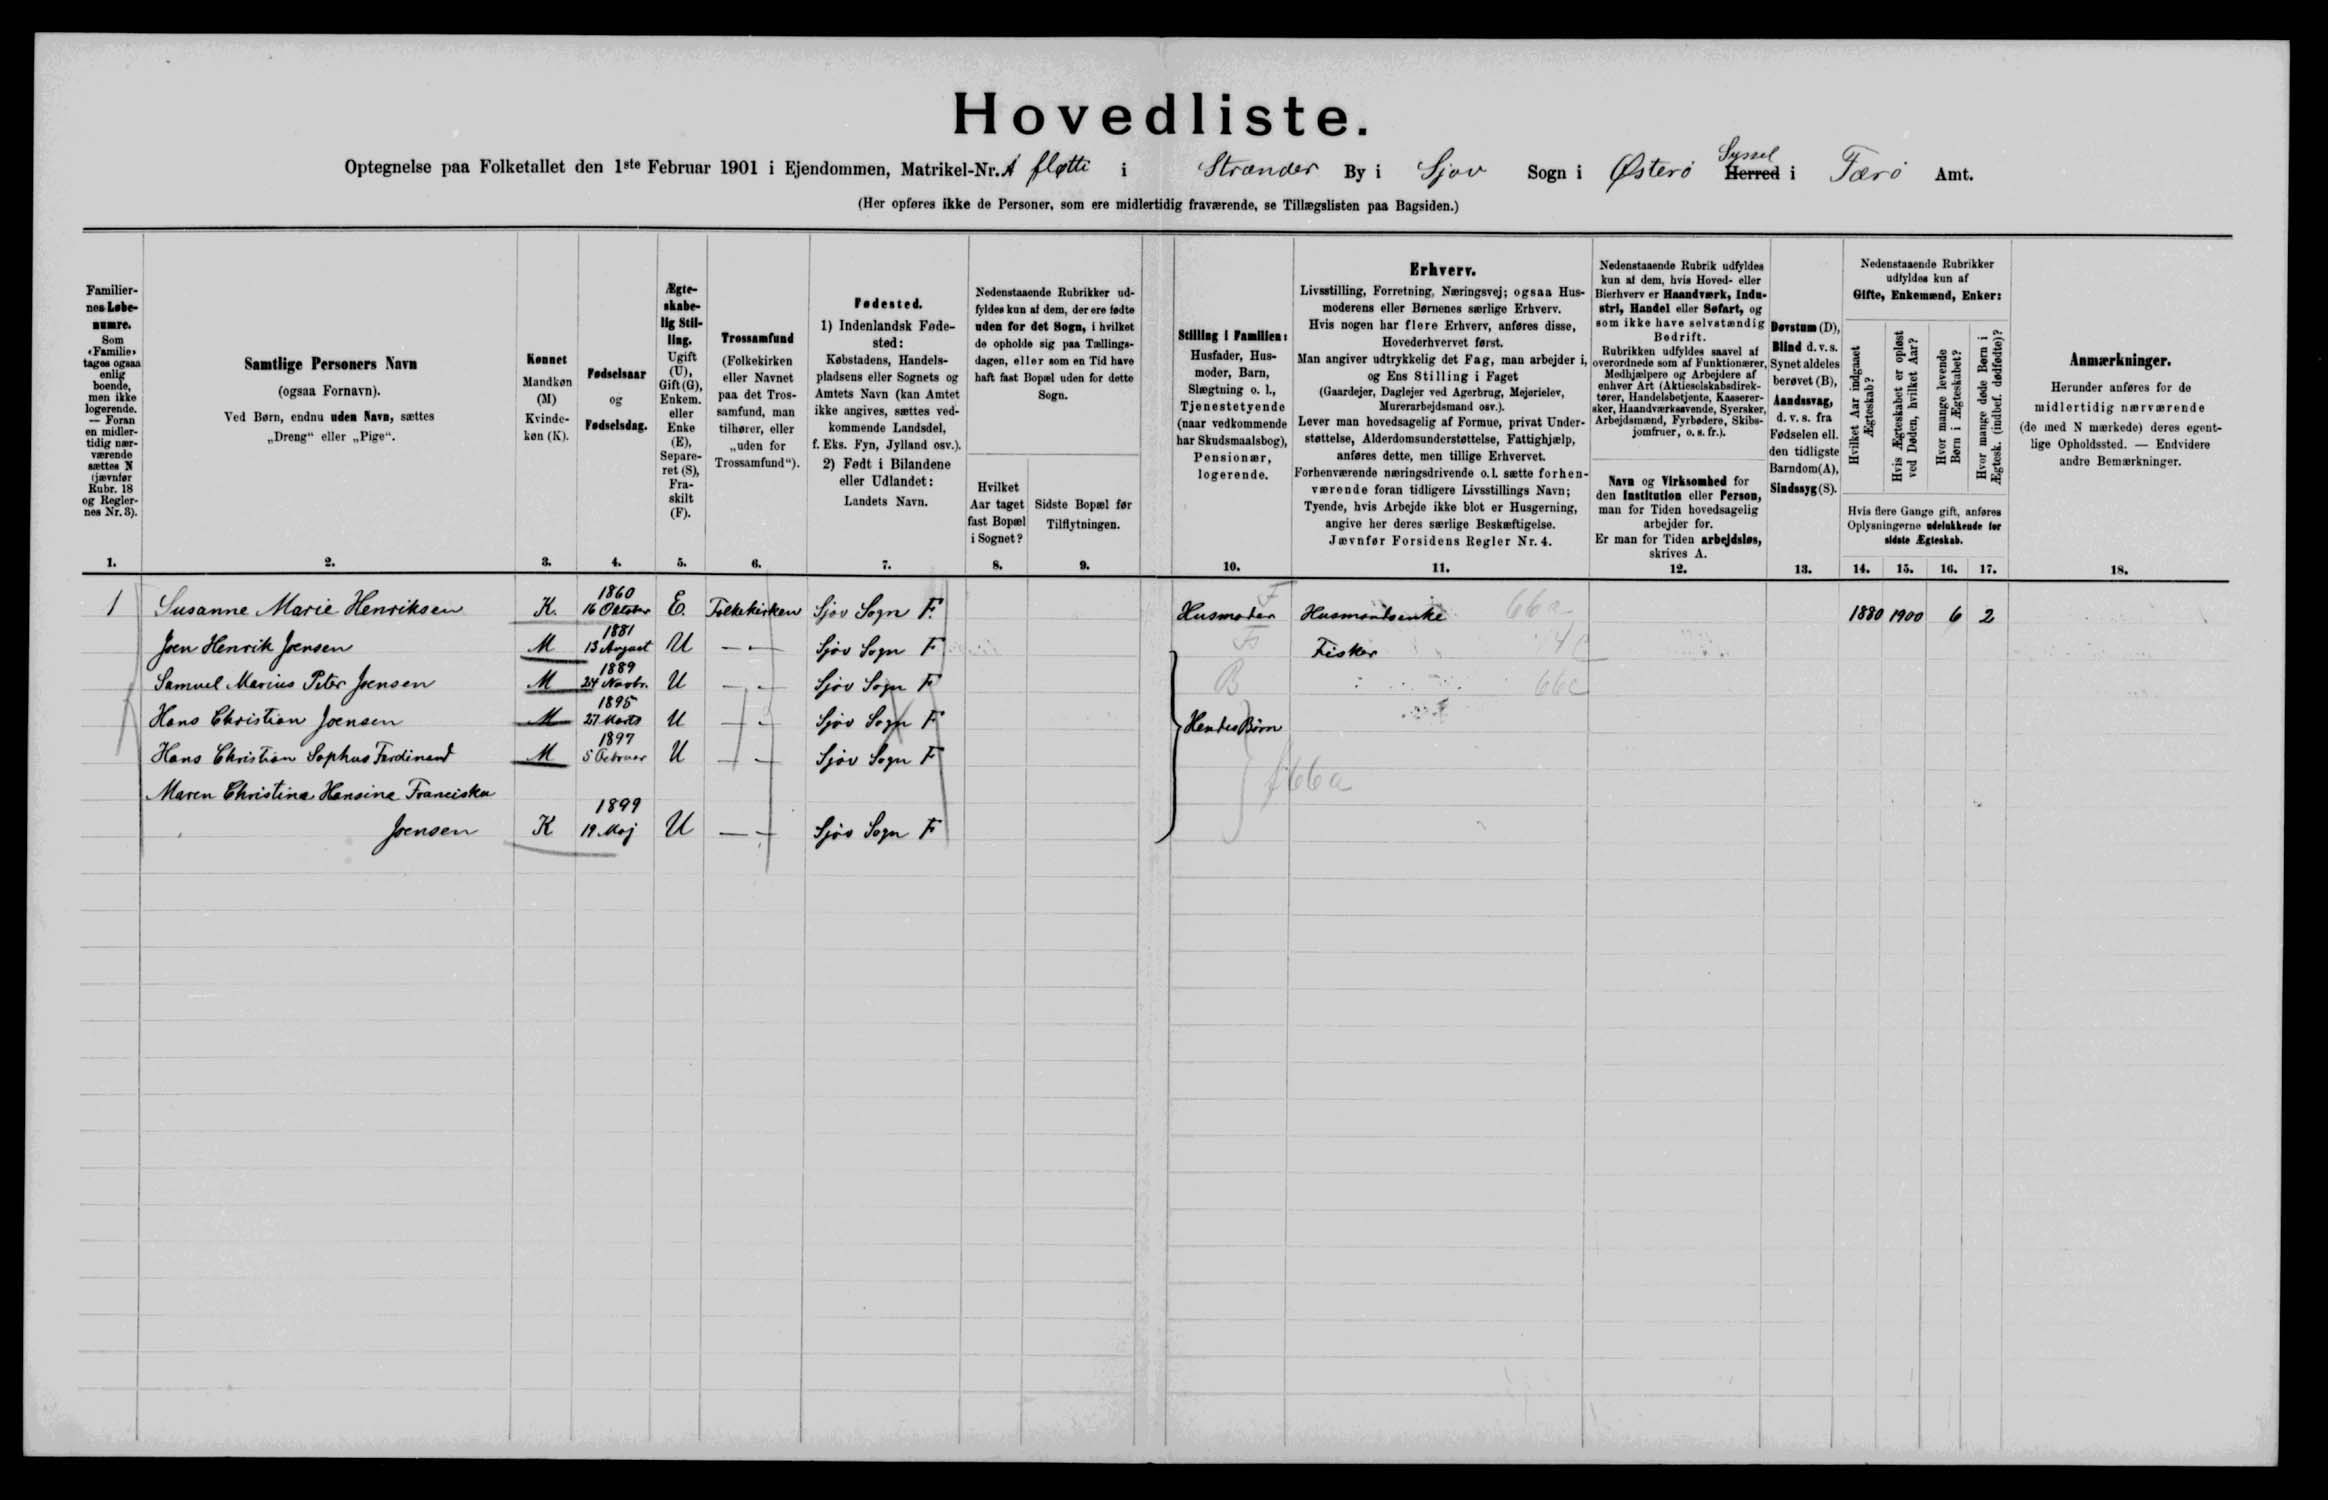 Hovedliste.
Optegnelse paa Folketallet den 1ste Februar 1901 i Ejendommen, Matrikel-Nr. Á fløtti i Strænder By i Sjov Sogn i Østerö Syssel Herred i Færö Amt.
(Her opføres ikke de Personer, som ere midlertidig fraværende, se Tillægslisten paa Bagsiden.)
Familier-
nes Løbe-
numre.
Som
«Familie»
tages ogsaa
enlig
boende,
men ikke
logerende.
— Foran
en midler-
tidig nær-
værende
sættes N
(jævnfør
Rubr. 18
og Regler-
nes Nr. 3).
1.
Samtlige Personers Navn
(ogsaa Fornavn).
Ved Børn, endnu uden Navn, sættes
„Dreng“ eller „Pige“.
2.
Kønnet
Mandkøn
(M)
Kvinde-
køn (K).
3.
Fødselsaar
og
Fødselsdag.
4.
Ægte-
skabe-
lig Stil-
ling.
Ugift
(U),
Gift (G),
Enkem.
eller
Enke
(E),
Separe-
ret (S),
Fra-
skilt
(F).
5.
Trossamfund
(Folkekirken
eller Navnet
paa det Tros-
samfund, man
tilhører, eller
„uden for
Trossamfund“).
6.
Fødested.
1) Indenlandsk Føde-
sted:
Købstadens, Handels-
pladsens eller Sognets og
Amtets Navn (kan Amtet
ikke angives, sættes ved-
kommende Landsdel,
f. Eks. Fyn, Jylland osv.).
2) Født i Bilandene
eller Udlandet:
Landets Navn.
7.
Nedenstaaende Rubrikker ud-
fyldes kun af dem, der ere fødte
uden for det Sogn, i hvilket
de opholde sig paa Tællings-
dagen, eller som en Tid have
haft fast Bopæl uden for dette
Sogn.
Hvilket
Aar taget
fast Bopæl
i Sognet?
8.
Sidste Bopæl før
Tilflytningen.
9.
Stilling i Familien:
Husfader, Hus-
moder, Barn,
Slægtning o. l.,
Tjenestetyende
(naar vedkommende
har Skudsmaalsbog),
Pensionær,
logerende.
10.
Erhverv.
Livsstilling, Forretning, Næringsvej; ogsaa Hus-
moderens eller Børnenes særlige Erhverv.
Hvis nogen har flere Erhverv, anføres disse,
Hovederhvervet først.
Man angiver udtrykkelig det Fag, man arbejder i,
og Ens Stilling i Faget
(Gaardejer, Daglejer ved Agerbrug, Mejerielev,
Murerarbejdsmand osv.).
Lever man hovedsagelig af Formue, privat Under-
støttelse, Alderdomsunderstøttelse, Fattighjælp,
anføres dette, men tillige Erhvervet.
Forhenværende næringsdrivende o. l. sætte forhen-
værende foran tidligere Livsstillings Navn;
Tyende, hvis Arbejde ikke blot er Husgerning,
angive her deres særlige Beskæftigelse.
Jævnfør Forsidens Regler Nr. 4.
11.
Nedenstaaende Rubrik udfyldes
kun af dem, hvis Hoved- eller
Bierhverv er Haandværk, Indu-
stri, Handel eller Søfart, og
som ikke have selvstændig
Bedrift.
Rubrikken udfyldes saavel af
overordnede som af Funktionærer,
Medhjælpere og Arbejdere af
enhver Art (Aktieselskabsdirek-
tører, Handelsbetjente, Kasserer-
sker, Haandværkssvende, Syersker,
Arbejdsmænd, Fyrbødere, Skibs-
jomfruer, o. s. fr.).
Navn og Virksomhed for
den Institution eller Person,
man for Tiden hovedsagelig
arbejder for.
Er man for Tiden arbejdsløs,
skrives A.
12.
Døvstum (D),
Blind d. v. s.
Synet aldeles
berøvet (B),
Aandssvag,
d. v. s. fra
Fødselen ell.
den tidligste
Barndom (A),
Sindssyg (S).
13.
Nedenstaaende Rubrikker
udfyldes kun af
Gifte, Enkemænd, Enker:
Hvilket Aar indgaaet
Ægteskab?
Hvis Ægteskabet er opløst
ved Døden, hvilket Aar?
Hvor mange levende
Børn i Ægteskabet?
Hvor mange døde Børn i
Ægtesk. (indbef. dødfødte)?
Hvis flere Gange gift, anføres
Oplysningerne udelukkende for
sidste Ægteskab.
14. 15. 16. 17.
Anmærkninger.
Herunder anføres for de
midlertidig nærværende
(de med N mærkede) deres egent-
lige Opholdssted. — Endvidere
andre Bemærkninger.
18.
1 Susanne Marie Henriksen K. 1860 16 Oktober E. Folkekirken Sjov Sogn F. Husmoder F Husmandsenke 66a 1880 1900 6 2
Joen Henrik Joensen M 1881 13 August U — — Sjov Sogn F Fisker
Samuel Marius Peter Joensen M 1889 24 Novbr. U — — Sjov Sogn F B 66c
Hans Christian Joensen M 1895 27 Marts U — — Sjov Sogn F Hendes Børn
Hans Christian Sophus Ferdinand M 1897 5 Februar U — — Sjov Sogn F
Maren Christina Hansine Franciska f66a
Joensen K 1899 19 Maj U — — Sjov Sogn F